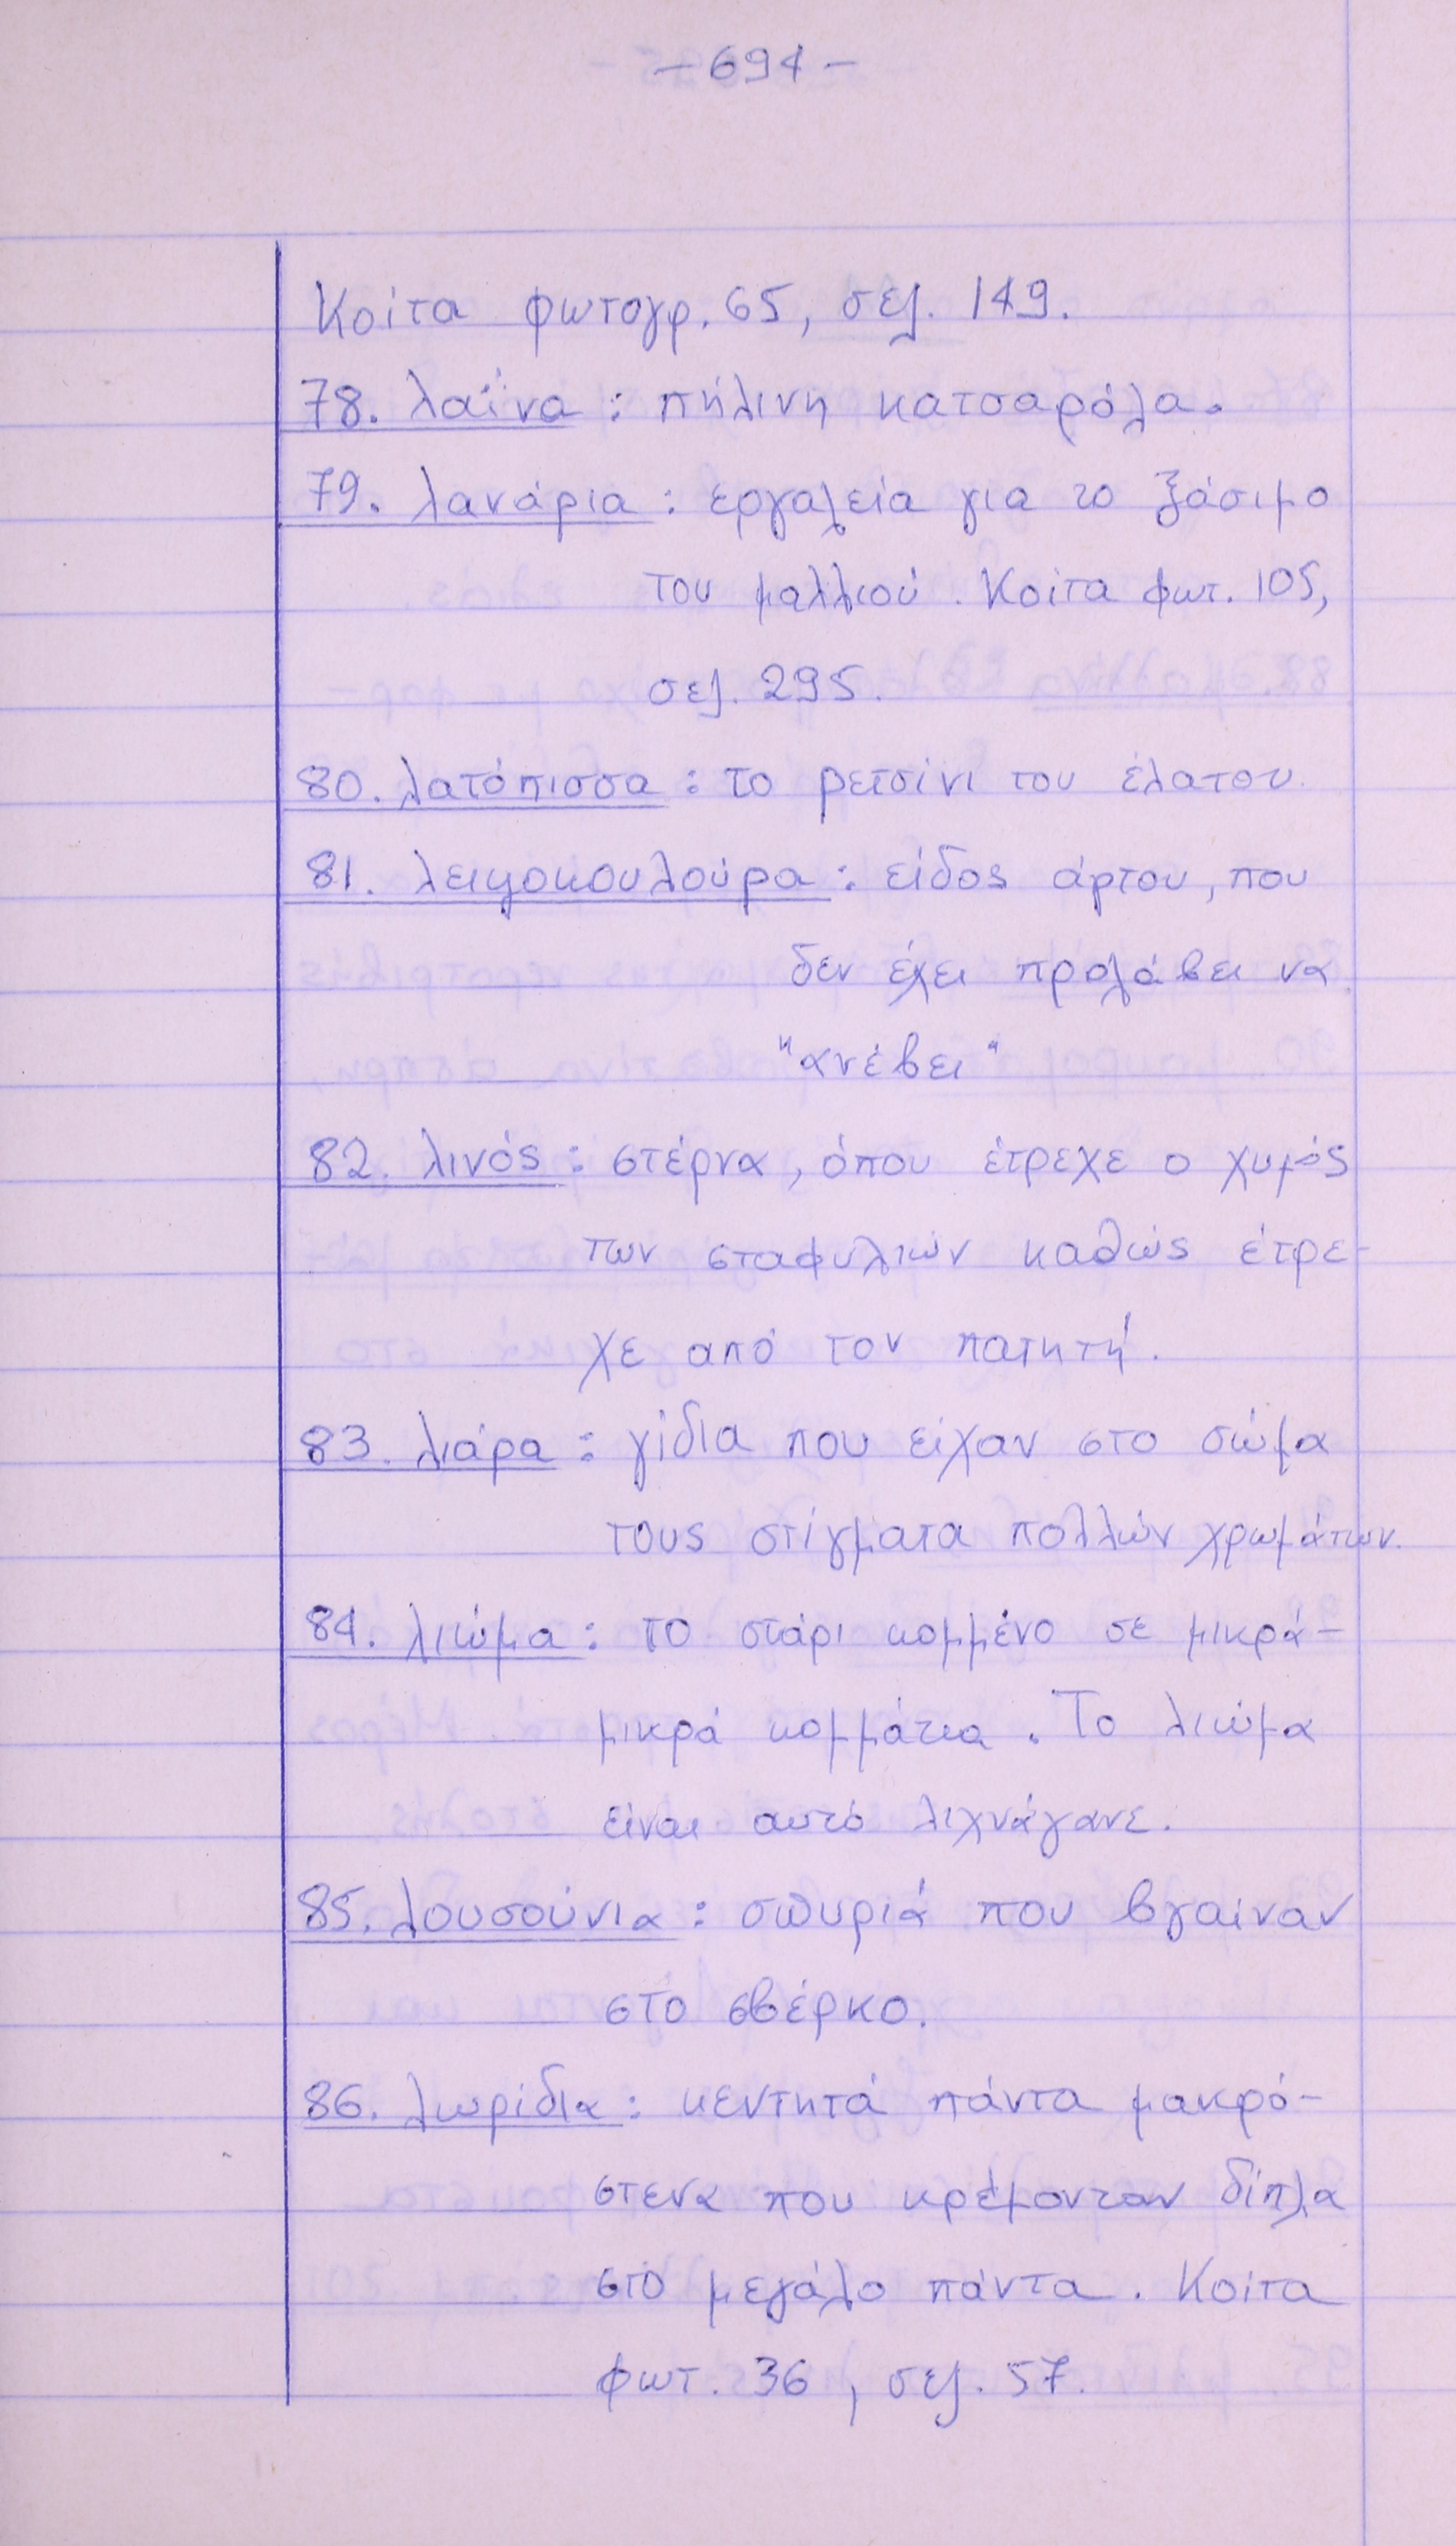 - 694 -
Κοίτα φωτογρ. 65, σελ. 149.
78. λαΐνα : πήλινη κατσαρόλα.
79. λανάρια : εργαλεία για το ξάσιμο
του μαλλιού. Κοίτα φωτ. 105,
σελ. 295.
80. λατόπισσα : το ρετσίνι του έλατου.
81. λειψοκουλούρα : είδος άρτου, που
δεν έχει προλάβει να
"ανέβει"
82. λινός : στέρνα, όπου έτρεχε ο χυμός
των σταφυλιών καθώς έτρε-
χε από τον πατητή.
83. λιάρα : γίδια που είχαν στο σώμα
τους στίγματα πολλών χρωμάτων.
84. λιώμα : το στάρι κομμένο σε μικρά-
μικρά κομμάτια. Το λιώμα
είναι αυτό λιχνάγανε.
85. λουσούνια : σπυριά που βγαίναν
στο σβέρκο.
86. λωρίδια : κεντητά πάντα μακρό-
στενα που κρέμονταν δίπλα
στο μεγάλο πάντα. Κοίτα
φωτ. 36, σελ. 57.